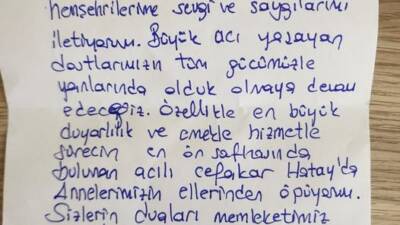 hemşehrilerime sevgi ve saygılarımı
iletiyorum. Büyük acı yaşayan
dostlarımızın tüm gücümüzle
yanlarında olduk olmaya devam
edeceğiz. Özellikle en büyük
duyarlılık ve emekle hizmetle
sürecin en ön safhasında
bulunan acılı cefakar Hatay'da
Annelerimizin ellerinden öpüyorum.
Sizlerin duaları memleketimiz